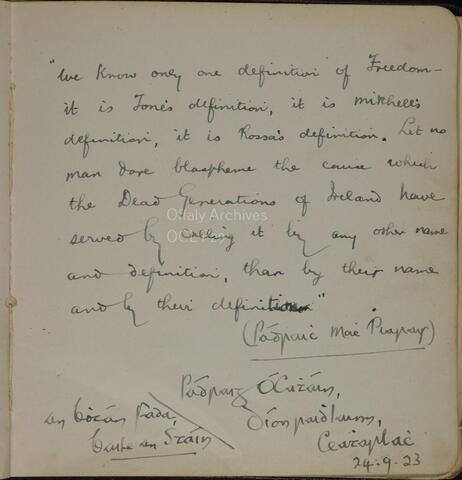 "We know only one definition of Freedom—
it is Tone's definition, it is Mitchell's
definition, it is Rossa's definition. Let no
man dare blaspheme the cause which
the Dead Generations of Ireland have
served by calling it by any other name
and definition, than by their name
and by their definition"
Offaly Archives
(Pádraic Mac Piarais)
Pádraig
an Bótán Fada,
24-9-23